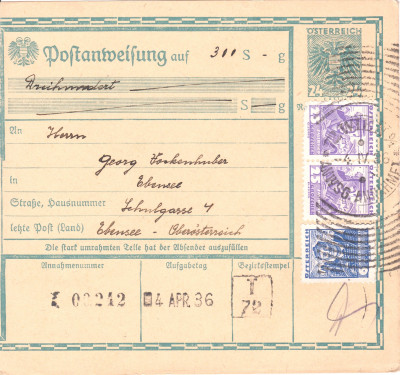 ÖSTERREICH
24
Postanweisung auf 300 S - g
Dreihundert
An Herrn
Georg Hockenhuber
in Ebensee
Straße, Hausnummer Schulgasse 4
letzte Post (Land) Ebensee - Oberösterreich
Die stark umrahmten Teile hat der Absender auszufüllen
Annahmenummer Aufgabetag Bezirksstempel
00242 4 APR. 36 T 72
ÖSTERREICH